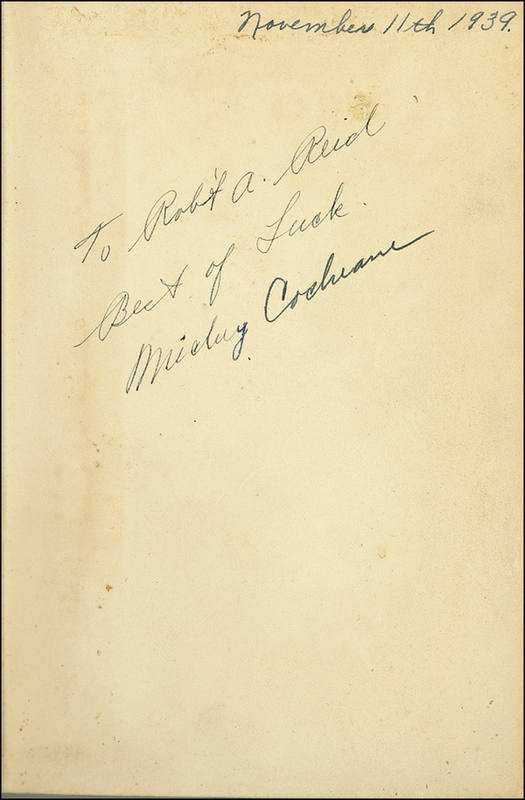 November 11th 1939.
To Rob't A. Reid
Best of Luck.
Mickey Cochrane